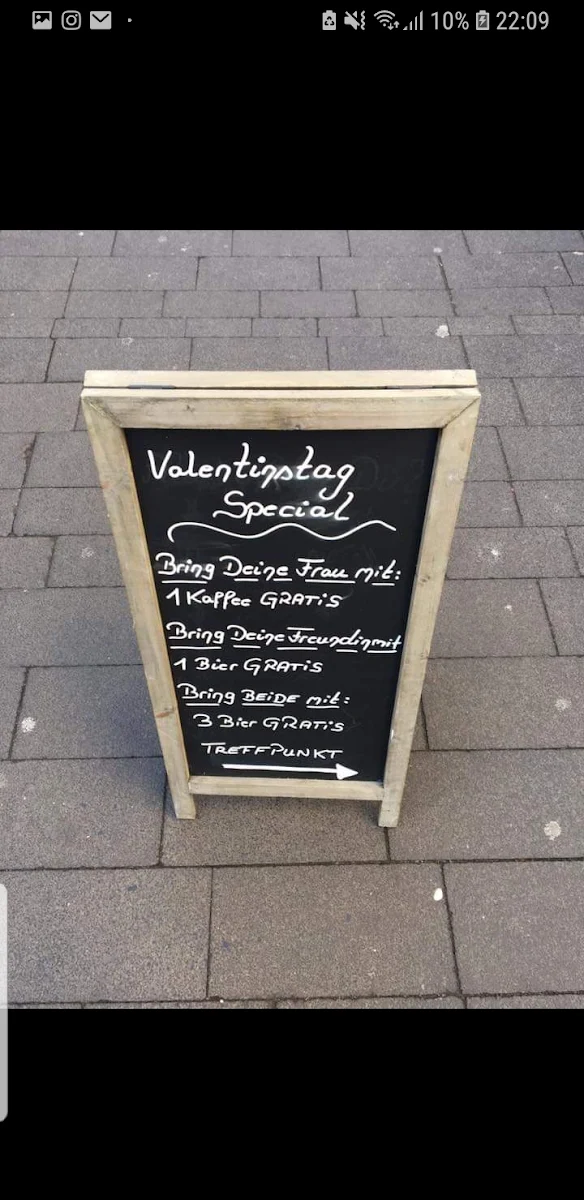 10% 22:09
Valentinstag
Special
Bring Deine Frau mit:
1 Kaffee GRATIS
Bring Deine Freundin mit
1 Bier GRATIS
Bring BEIDE mit:
3 Bier GRATIS
TREFFPUNKT